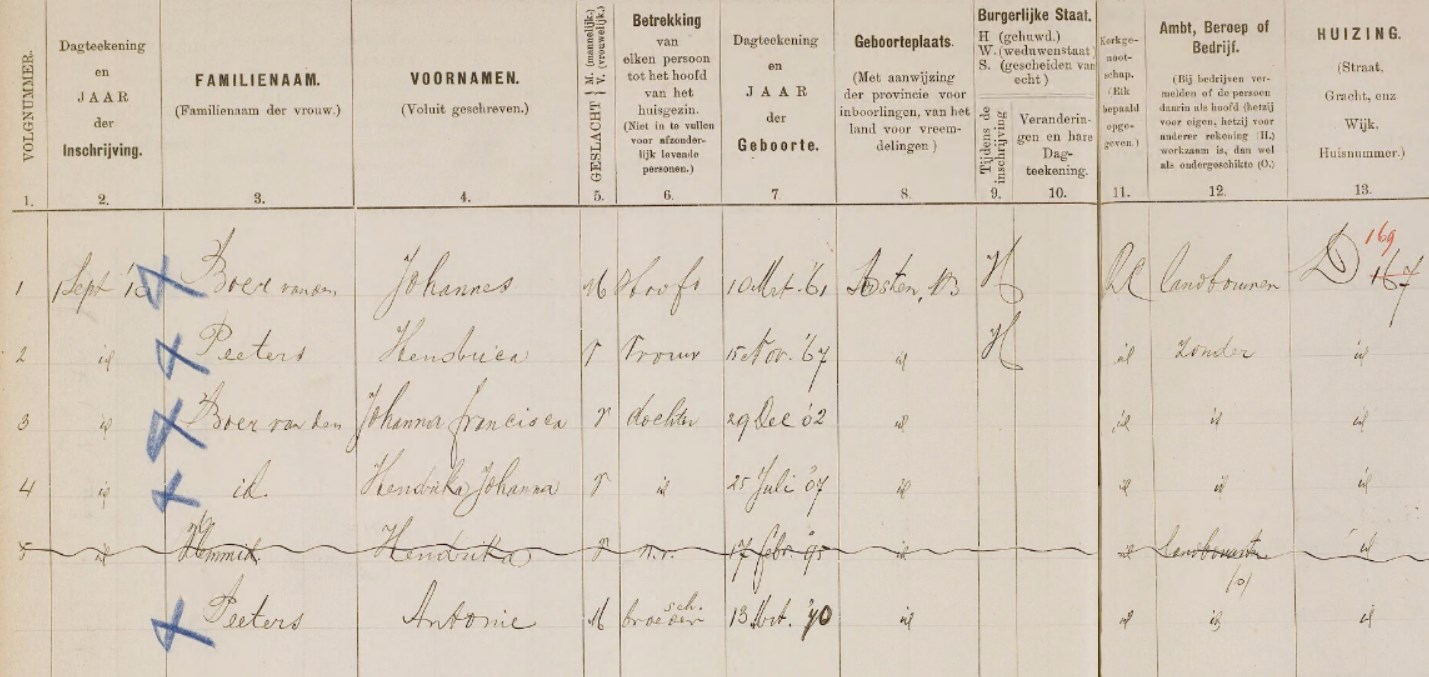 VOLGNUMMER.
1.
Dagteekening
en
JAAR
der
Inschrijving.
2.
FAMILIENAAM.
(Familienaam der vrouw.)
3.
VOORNAMEN.
(Voluit geschreven.)
4.
GESLACHT { M. (mannelijk.) V. (vrouwelijk.)
5.
Betrekking
van
elken persoon
tot het hoofd
van het
huisgezin.
(Niet in te vullen
voor afzonder-
lijk levende
personen.)
6.
Dagteekening
en
JAAR
der
Geboorte.
7.
Geboorteplaats.
(Met aanwijzing
der provincie voor
inboorlingen, van het
land voor vreem-
delingen)
8.
Burgerlijke Staat.
H (gehuwd.)
W. (weduwenstaat)
S. (gescheiden van
echt)
Tijdens de
inschrijving
9.
Veranderin-
gen en hare
Dag-
teekening.
10.
Kerkge-
noot-
schap.
(Elk
bepaald
opge-
geven.)
11.
Ambt, Beroep of
Bedrijf.
(Bij bedrijven ver-
melden of de persoon
daarin als hoofd (hetzij
voor eigen, hetzij voor
anderer rekening (H.)
werkzaam is, dan wel
als ondergeschikte (O.)
12.
HUIZING.
(Straat,
Gracht, enz
Wijk.
Huisnummer.)
13.
1 1 Sept Boer van den Johannes M Hoofd 10 Mrt. '61 Asten, NB H RC landbouwer D 167 169
2 id Peeters Hendrica V Vrouw 15 Nov. '67 id H id zonder id
3 id Boer van den Johanna francisca V dochter 29 Dec '02 id id id id
4 id id. Hendrika Johanna V id 25 Juli '07 id id id id
5 id Hendrika V n.v. 17 febr. '95 id id id
(o)
Peeters Antonie M sch. broeder 13 '70 id id id id